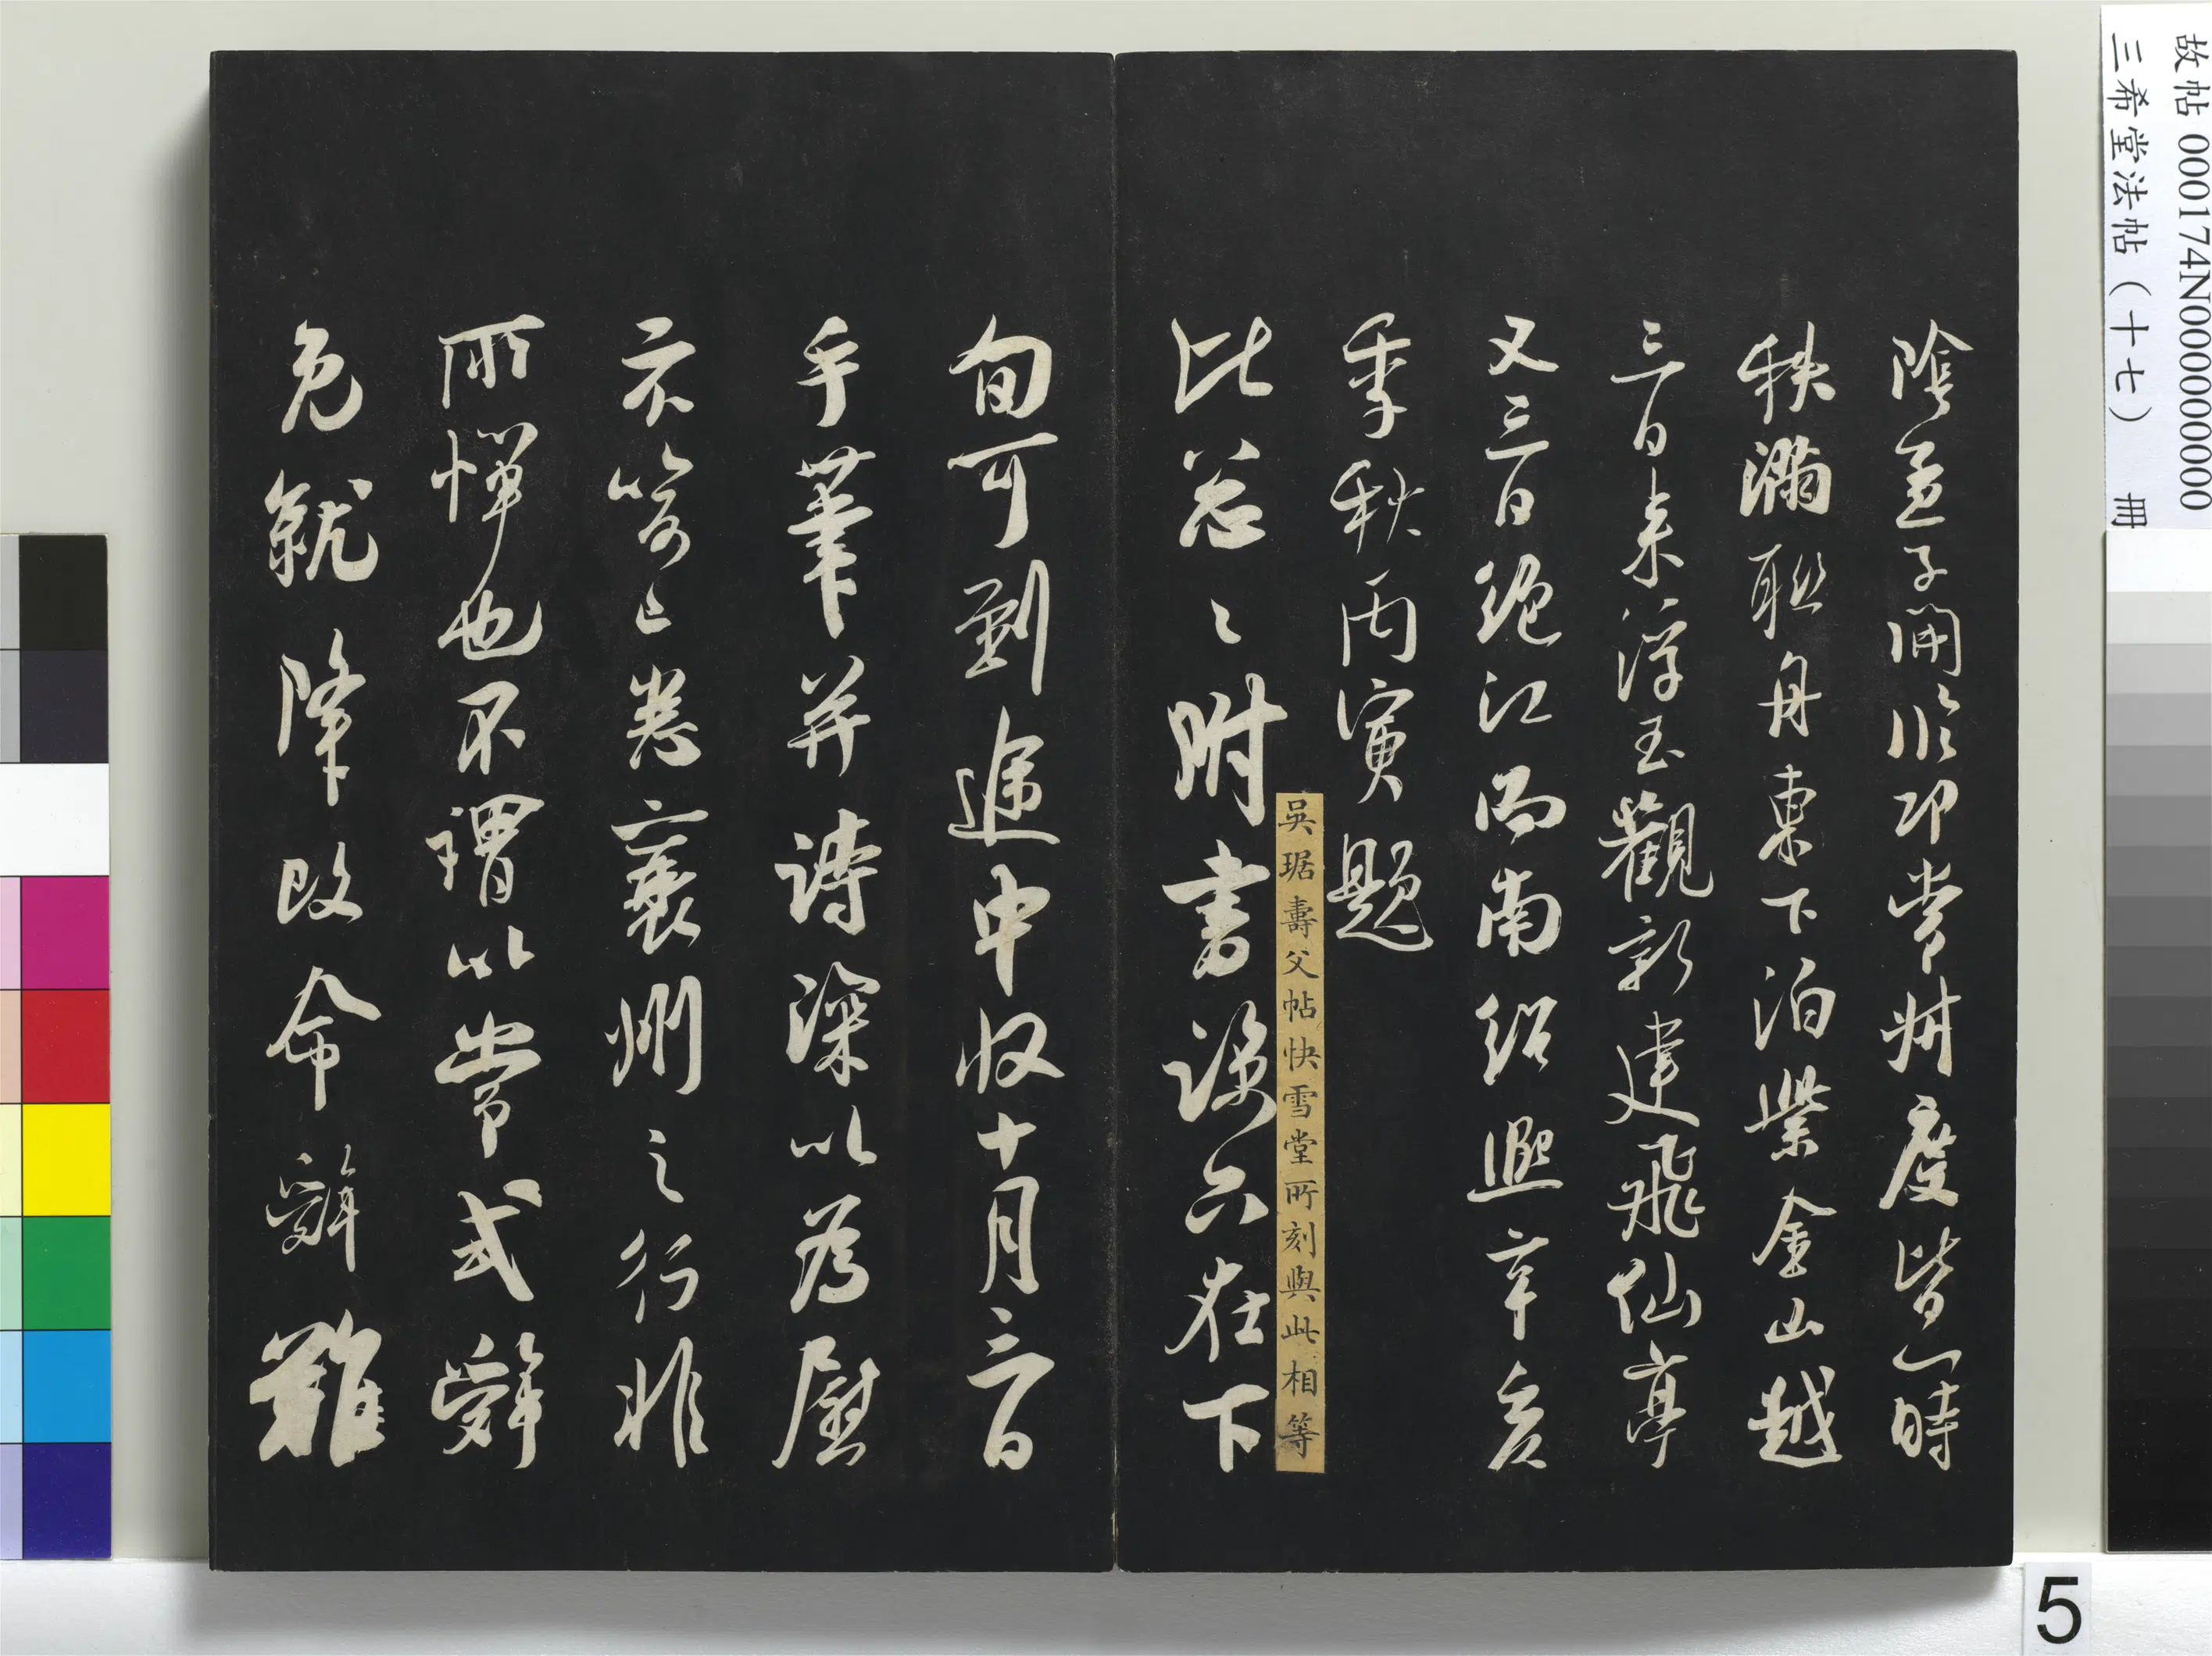 故帖 000174N000000000
三希堂法帖（十七） 冊
陰孟子開臨邛常州度皆一時
秩滿聯舟東下泊紫金山越
三日來浮玉觀新建飛仙亭
又三日絕江而南紹熙辛亥
季秋丙寅題
吳琚壽父帖快雪堂所刻與此相等
比忽〻附書諒只在下
旬可到遞中收十月三日
手筆并詩深以為慰
示喻已悉襄州之行非
所憚也不謂以常式辭
免就降改命辭難
5